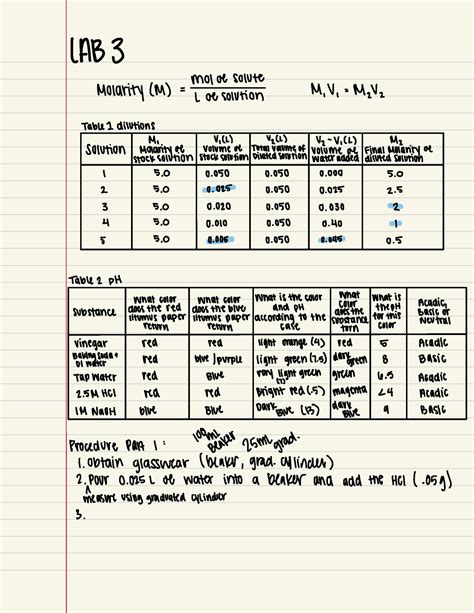 LAB 3
Molarity (M) = mol of solute / L of solution    M₁V₁ = M₂V₂
Table 1 dilutions
Solution | M₁ Molarity of stock solution | V₁(L) Volume of stock solution | V₂(L) Total volume of Diluted solution | V₂ - V₁(L) Volume of water added | M₂ Final Molarity of diluted solution
1 | 5.0 | 0.050 | 0.050 | 0.000 | 5.0
2 | 5.0 | 0.025 | 0.050 | 0.025 | 2.5
3 | 5.0 | 0.020 | 0.050 | 0.030 | 2
4 | 5.0 | 0.010 | 0.050 | 0.40 | 1
5 | 5.0 | 0.005 | 0.050 | 0.045 | 0.5
Table 2 pH
Substance | What color does the red litumus paper return | What color does the blue litumus paper return | What is the color and pH according to the case | What color does the substance torn | What is the pH for this color | Acadic, Basic or Neutral
vinegar | red | red | light orange (4) | red | 5 | Acadic
Baking Soda + DI water | red | blue/purple | light green (7.5) | dark green | 8 | Basic
Tap Water | red | Blue | very light green (7) | green | 6.5 | Acadic
2.5M HCl | red | red | Bright red (.5) | magenta | <4 | Acadic
1M NaOH | blue | Blue | Dark Blue (13) | dark Blue | 9 | Basic
Procedure Part 1: 100mL Beaker 25mL grad.
1. obtain glasswear (beaker, grad. cylinder)
2. Pour 0.025 L of water into a beaker and add the HCl (.05g)
^ measure using graduated cylinder
3.